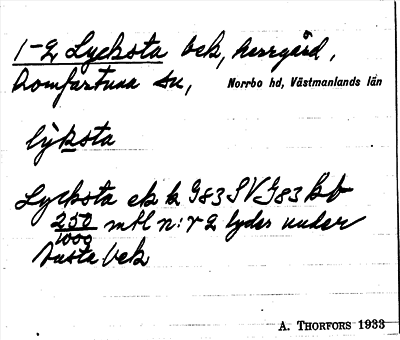 1-2 Lycksta bek, herrgård,
Romfartuna sn, Norrbo hd, Västmanlands län
lỳksta
Lycksta ek k G83 SV G83 kb
250
1000 mtl n:r 2 lyder under
Tuste bek
A. THORFORS 1933